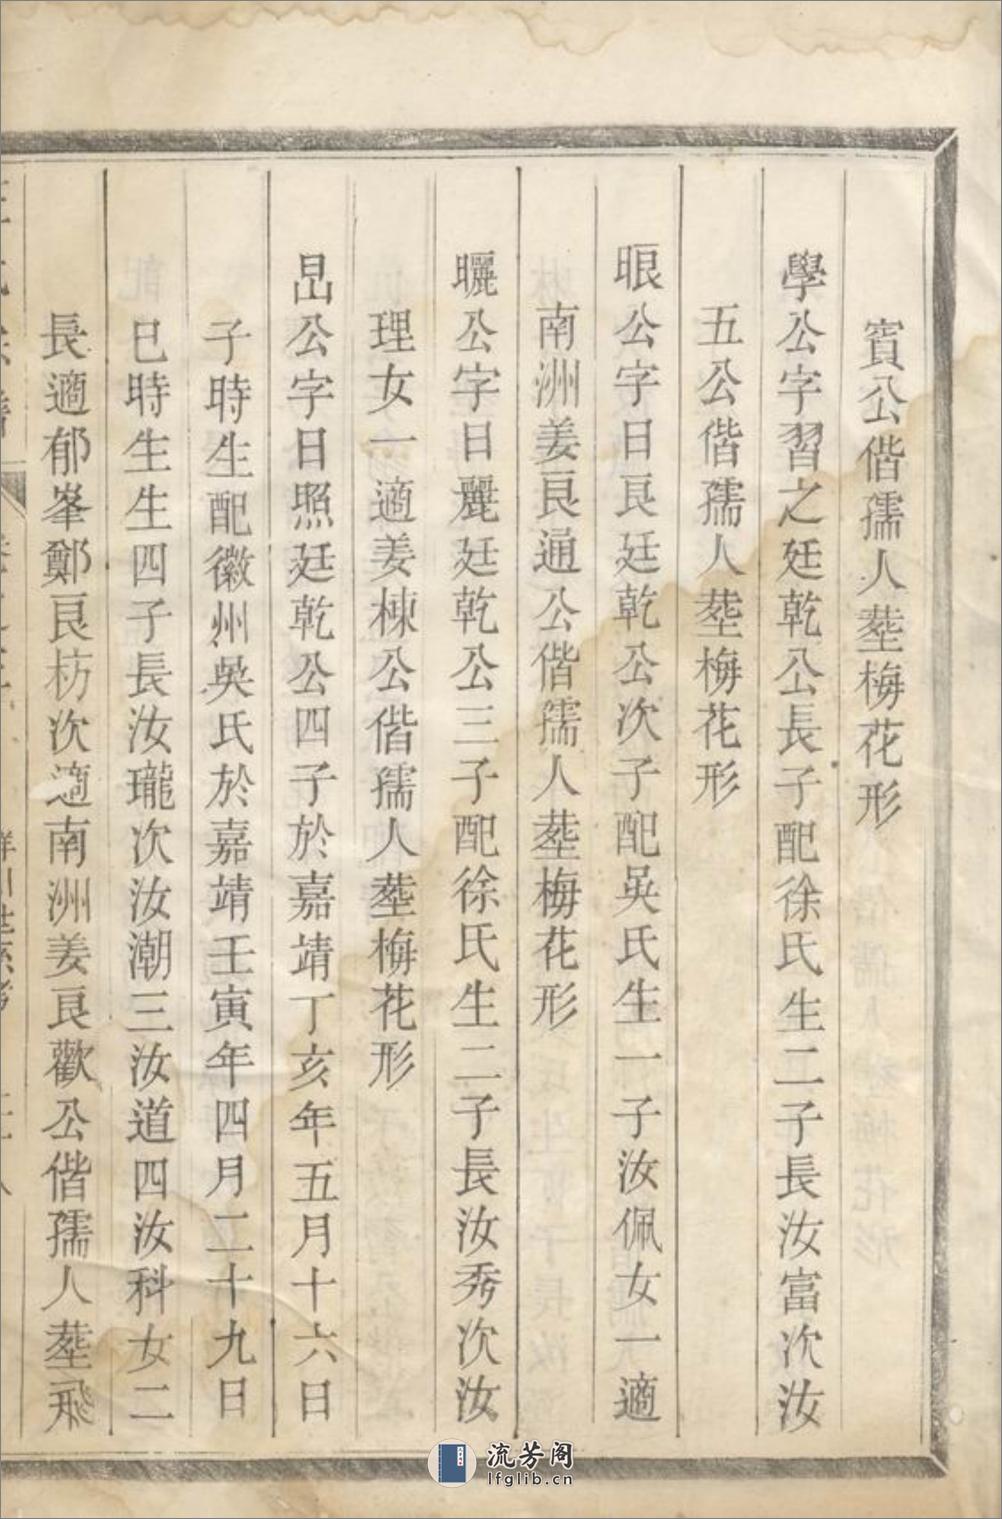 賓公偕孺人塟梅花形
學公字習之廷乾公長子配徐氏生二子長汝富次汝
五公偕孺人塟梅花形
哏公字日良廷乾公次子配吳氏生一子汝佩女一適
南洲姜良通公偕孺人塟梅花形
曬公字日麗廷乾公三子配徐氏生二子長汝秀次汝
理女一適姜棟公偕孺人塟梅花形
公字日照廷乾公四子於嘉靖丁亥年五月十六日
子時生配徽州吳氏於嘉靖壬寅年四月二十九日
巳時生生四子長汝瓏次汝潮三汝道四汝科女二
長適郁峯鄭良枋次適南洲姜良歡公偕孺人塟飛
流芳阁
lfglib.cn